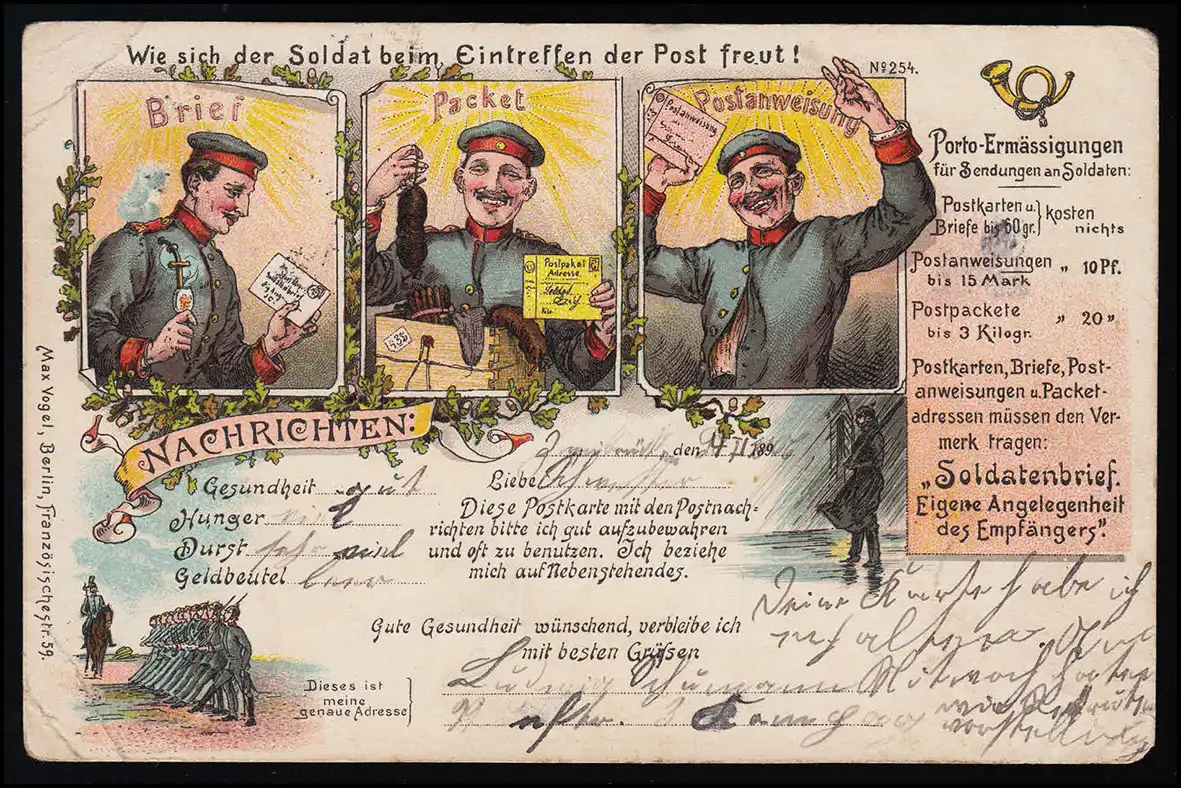 Wie sich der Soldat beim Eintreffen der Post freut!
Nº 254.
Brief
Packet
Postanweisung
Postanweisung
Postpaket
Adresse.
Porto-Ermässigungen
für Sendungen an Soldaten:
Postkarten u.
Briefe bis 60 gr. } kosten nichts
Postanweisungen „ 10 Pf.
bis 15 Mark
Postpackete „ 20 „
bis 3 Kilogr.
Postkarten, Briefe, Post-
anweisungen u. Packet-
adressen müssen den Ver-
merk tragen:
„Soldatenbrief.
Eigene Angelegenheit
des Empfängers“.
NACHRICHTEN:
Gesundheit gut
Hunger viel
Durst sehr viel
Geldbeutel leer
, den 189
Liebe Schwester
Diese Postkarte mit den Postnach-
richten bitte ich gut aufzubewahren
und oft zu benutzen. Ich beziehe
mich auf Nebenstehendes.
Gute Gesundheit wünschend, verbleibe ich
mit besten Grüßen
Ludwig Schumann
Dieses ist
meine
genaue Adresse
Deine Karte habe ich
erhalten.
Mitwoch haten
wir
vorstellung
Max Vogel, Berlin, Französischestr. 59.